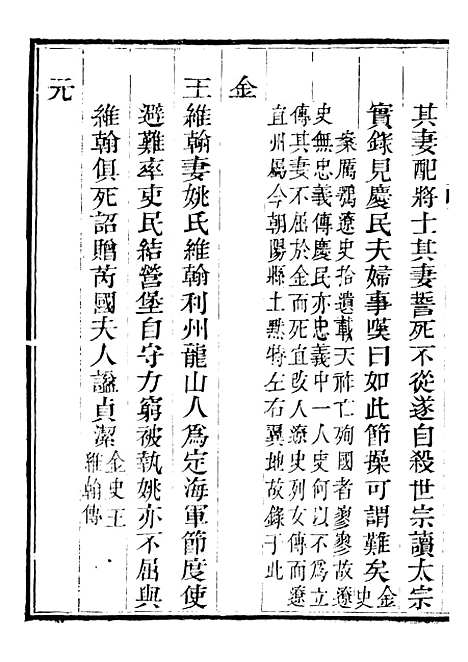 其妻配將士其妻誓死不從遂自殺世宗讀太宗
實錄見慶民夫婦事嘆曰如此節操可謂難矣金史
案厲鶚遼史拾遺載天祚亡殉國者寥寥故遼
史無忠義傳慶民亦忠義中一人史何以不爲立
傳其妻不屈於金而死宜改入遼史列女傳而遼
宜州屬今朝陽縣土默特左右翼地故錄于此
金
王維翰妻姚氏維翰利州龍山人爲定海軍節度使
避難率吏民結營堡自守力窮被執姚亦不屈與
維翰俱死詔贈芮國夫人諡貞潔金史王維翰傳
元